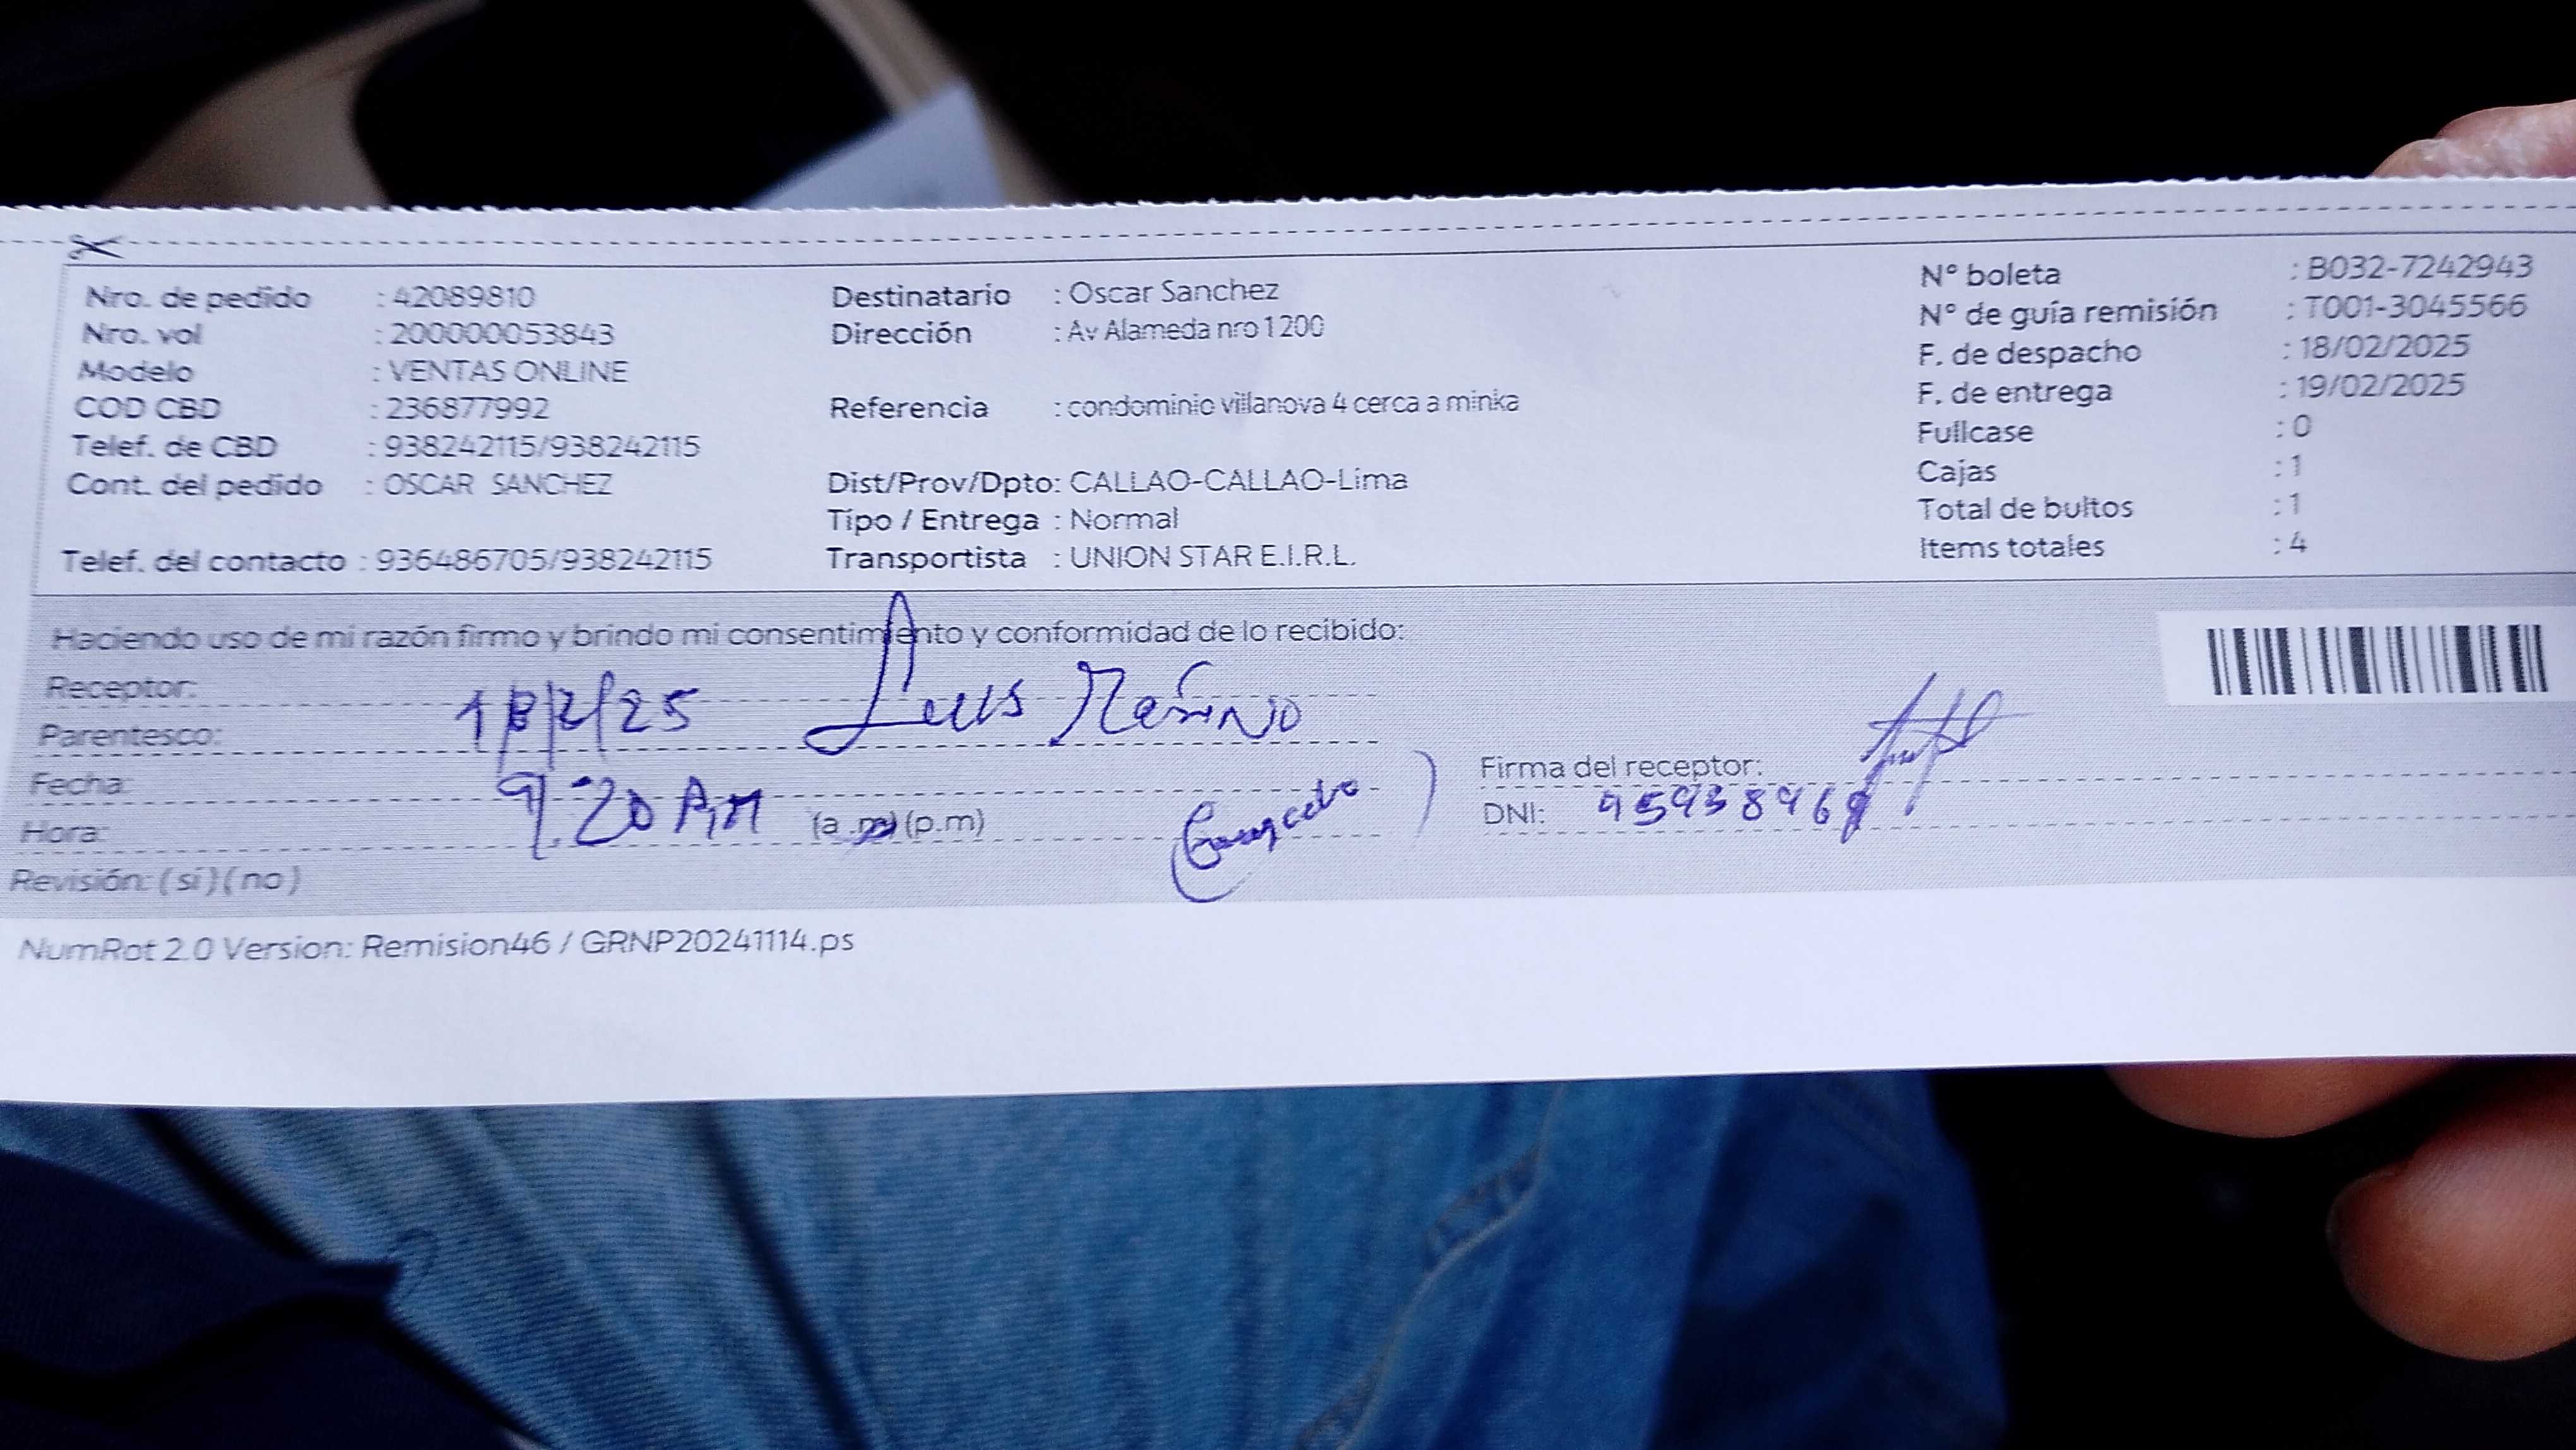 Nro. de pedido : 42089810
Nro. vol : 200000053843
Modelo : VENTAS ONLINE
COD CBD : 236877992
Telef. de CBD : 938242115/938242115
Cont. del pedido : OSCAR SANCHEZ
Telef. del contacto : 936486705/938242115
Destinatario : Oscar Sanchez
Dirección : Av Alameda nro 1200
Referencia : condominio villanova 4 cerca a minka
Dist/Prov/Dpto: CALLAO-CALLAO-Lima
Tipo / Entrega : Normal
Transportista : UNION STAR E.I.R.L.
N° boleta : B032-7242943
N° de guía remisión : T001-3045566
F. de despacho : 18/02/2025
F. de entrega : 19/02/2025
Fullcase : 0
Cajas : 1
Total de bultos : 1
Items totales : 4
Haciendo uso de mi razón firmo y brindo mi consentimiento y conformidad de lo recibido:
Receptor: Luis
Parentesco: 18/2/25
Fecha:
Hora: 9:20 AM (a.m) (p.m)
Revisión: (si) (no)
Firma del receptor:
DNI:
NumRot 2.0 Version: Remision46 / GRNP20241114.ps